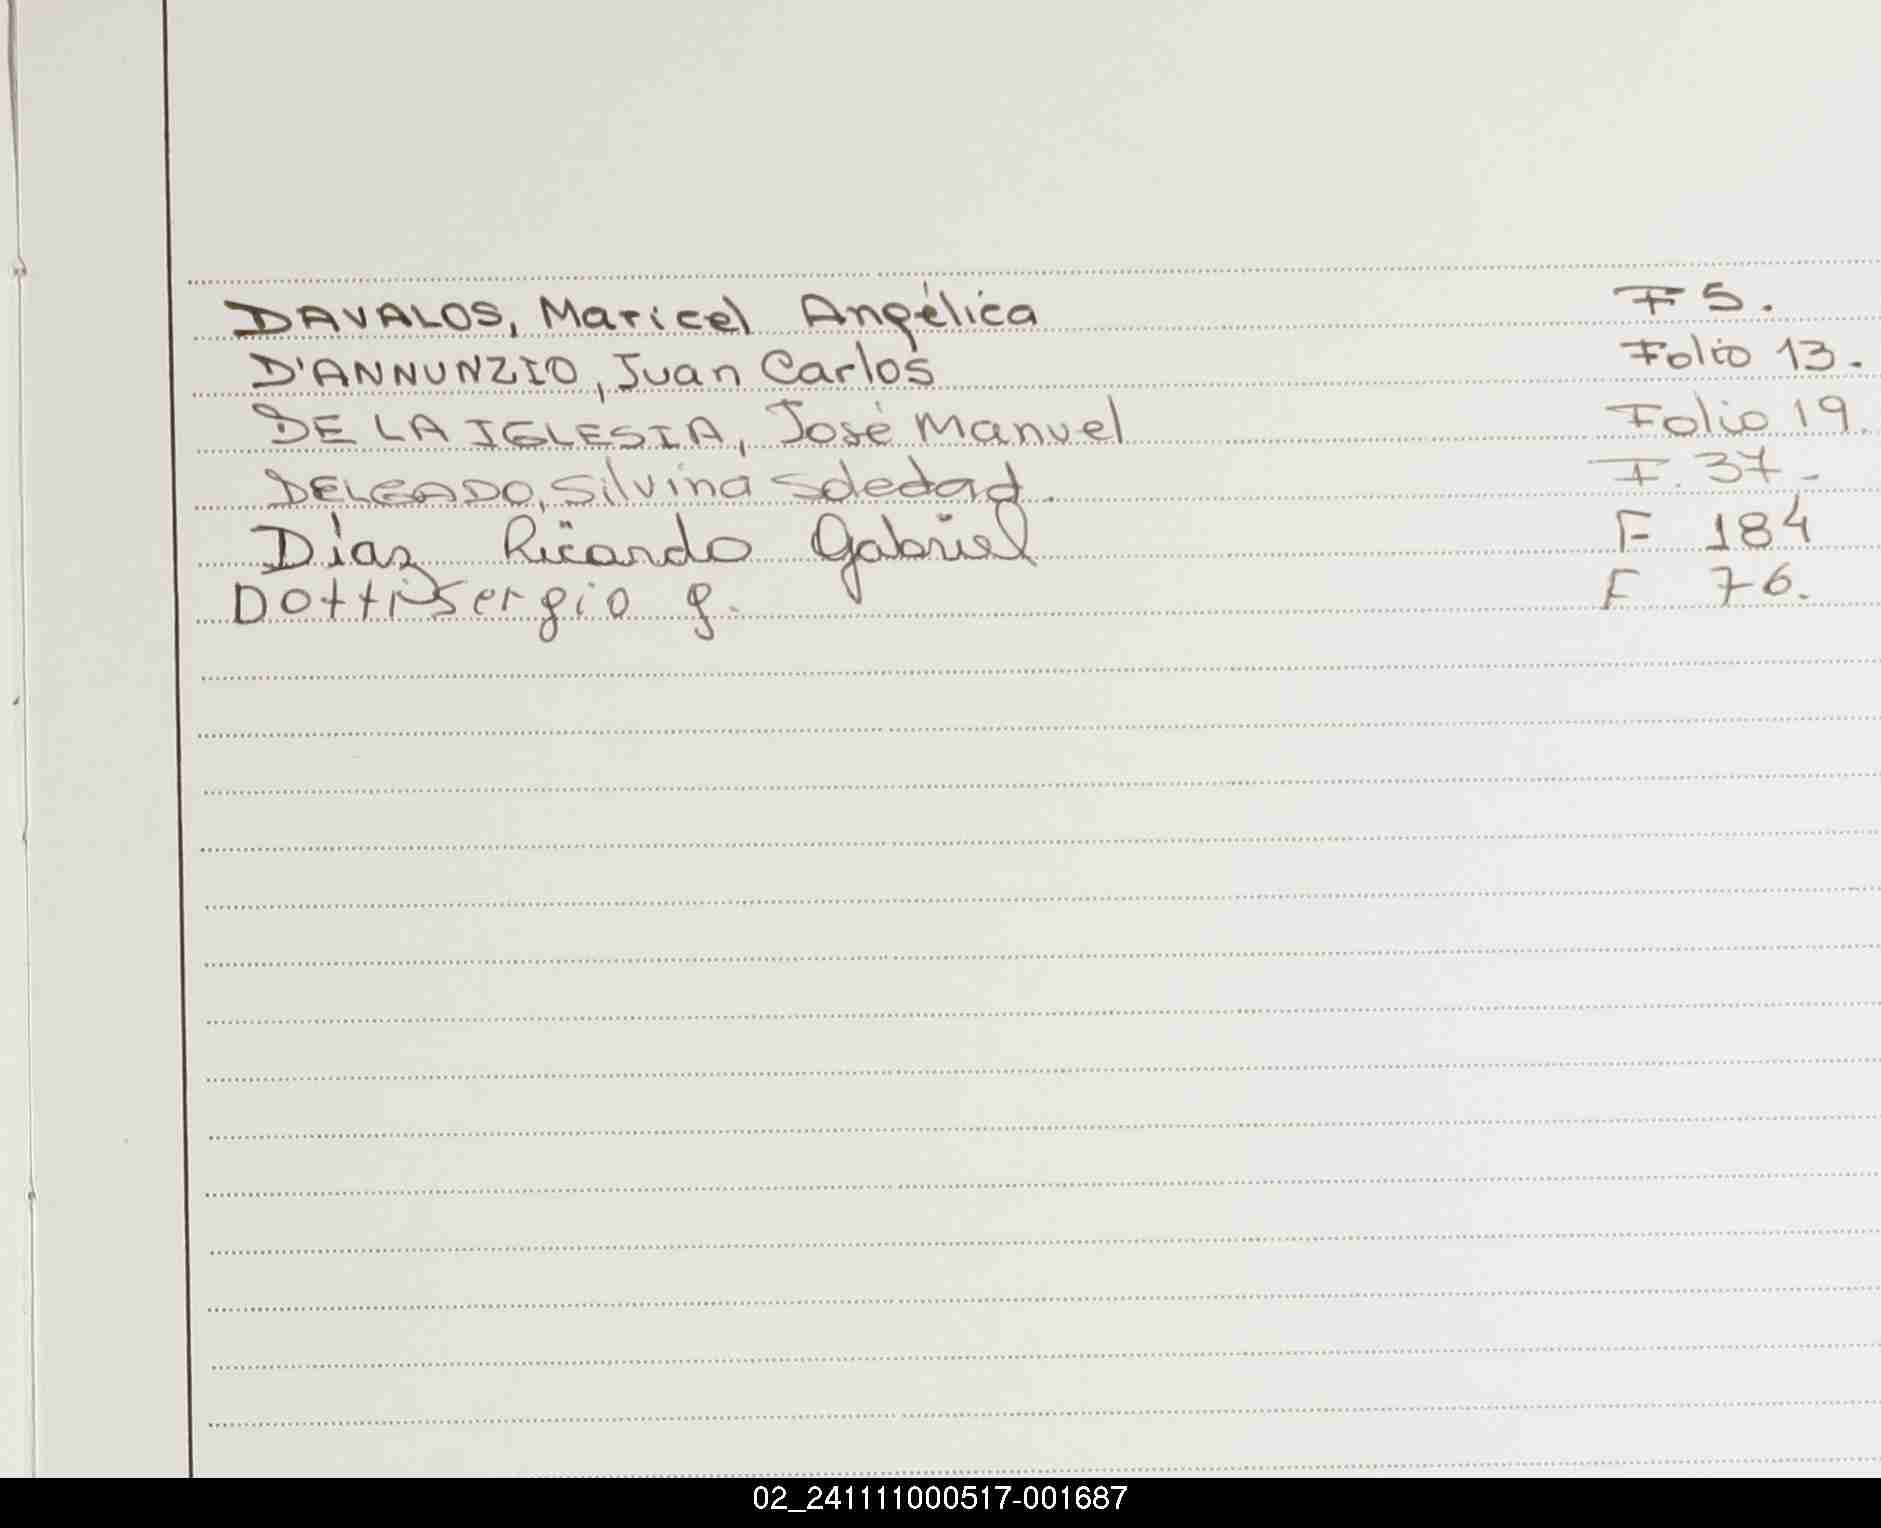 DAVALOS, Maricel Angélica F 5.
D'ANNUNZIO, Juan Carlos Folio 13.
DE LA IGLESIA, José Manuel Folio 19.
DELGADO, Silvina Soledad. F. 37-
Díaz Ricardo Gabriel F 184
Dotti Sergio g. F 76.
02_241111000517-001687